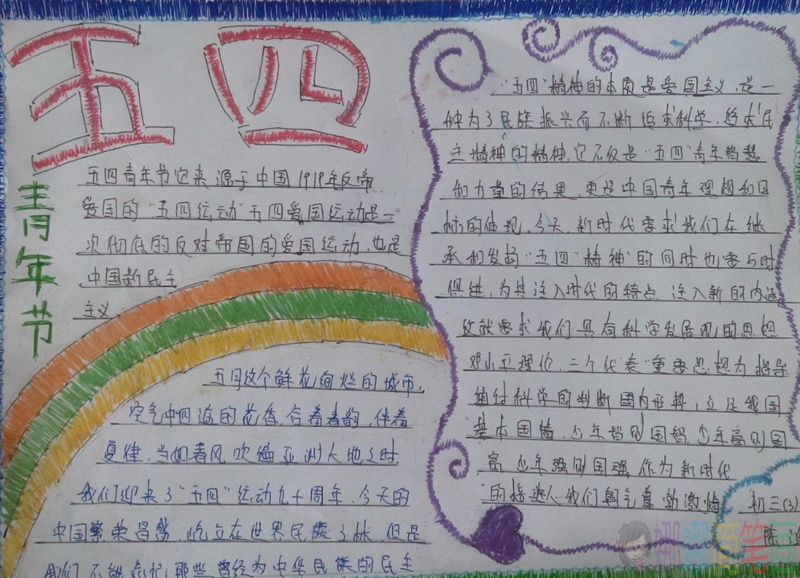 五四
青年节
五四青年节它来源于中国1919年反帝
爱国的"五四运动"五四爱国运动是一
次彻底的反对帝国的爱国运动,也是
中国新民主
主义
五月这个鲜花绚烂的城市,
空气中四溢的花香,合着春韵,伴着
夏律,当如春风吹遍亚洲大地之时
我们迎来了"五四"运动九十周年,今天的
中国繁荣昌盛,屹立在世界民族之林,但是
我们不能忘记那些曾经为中华民族的民主
"五四"精神的本质是爱国主义,是一
种为了民族振兴而不断追求科学,追求民
主精神的精神,它不仅是"五四"青年智慧
和力量的结果,更是中国青年理想和目
标的体现,今天,新时代要求我们在继
承和发扬"五四"精神"的同时也要与时
俱进,为其注入时代的特点,注入新的内涵
这就要求我们具有科学发展观的思想
邓小平理论,三个代表"重要思想为指导
通过科学的判断国内形势,立足我国
基本国情,少年智则国智,少年富则国
富,少年强则国强,作为新时代
的接班人,我们朝气蓬勃激情
初三(3)
陈
简笔画